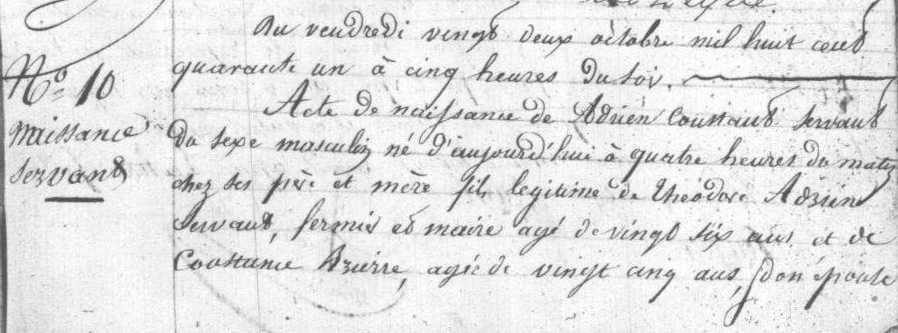 Du vendredi vingt deux octobre mil huit cent
quarante un à cinq heures du soir.
Nº 10
naissance
Servant
Acte de naissance de Adrien Constant Servant
du sexe masculin né d'aujourd'hui à quatre heures du matin
chez ses père et mère fils legitime de Théodore Adrien
Servant, fermier et maire agé de vingt six ans, et de
Constance, agée de vingt cinq ans, son épouse